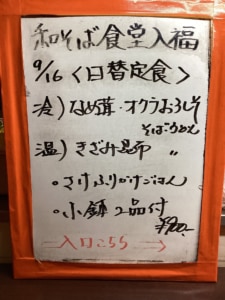 和そば食堂入福
9/16 〈日替定食〉
冷）なめ茸・オクラおろしそ
そばorうどん
温）きざみ昆布 〃
。さけふりかけごはん
。小鉢2品付
¥900-
入口こちら →